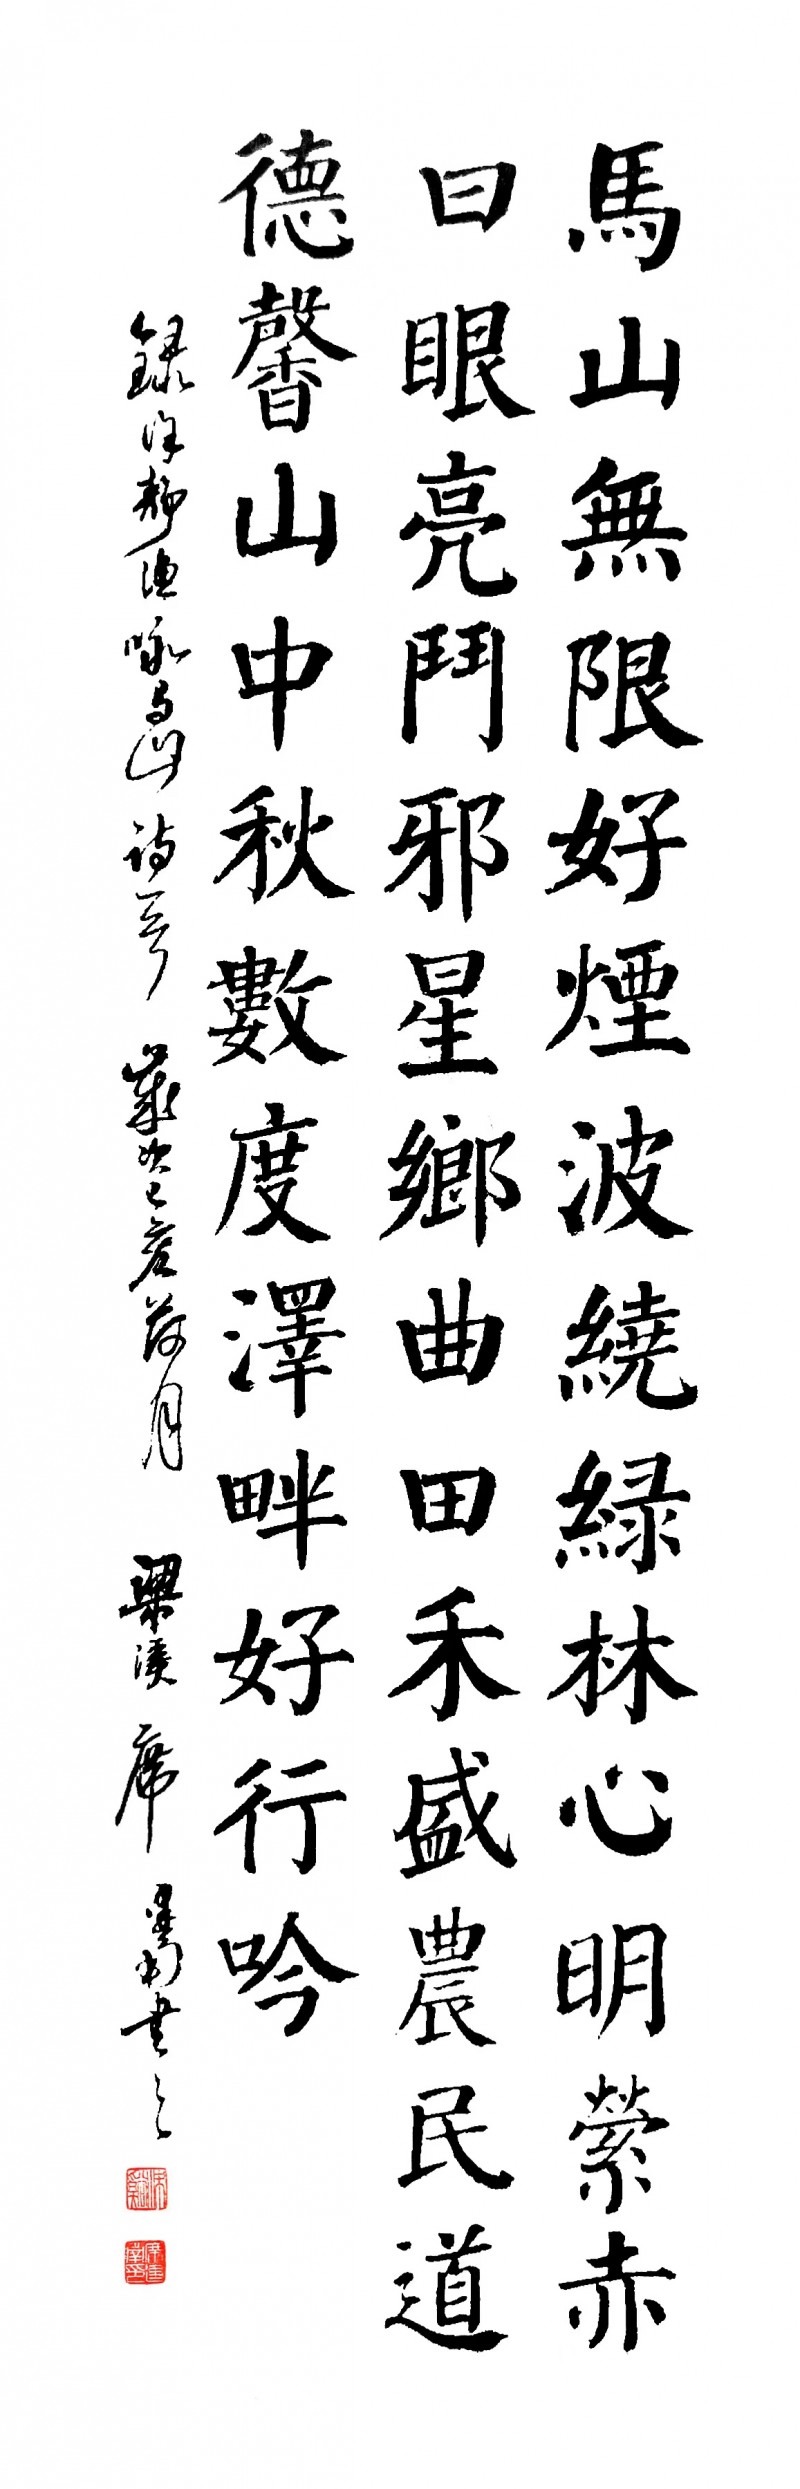 馬山無限好煙波繞緑林心明縈赤
日眼亮鬥邪星鄉曲田禾盛農民道
德馨山中秋數度澤畔好行吟
録徐静渔咏馬山诗一首 歲次己亥荷月 梁溪 席 南书之